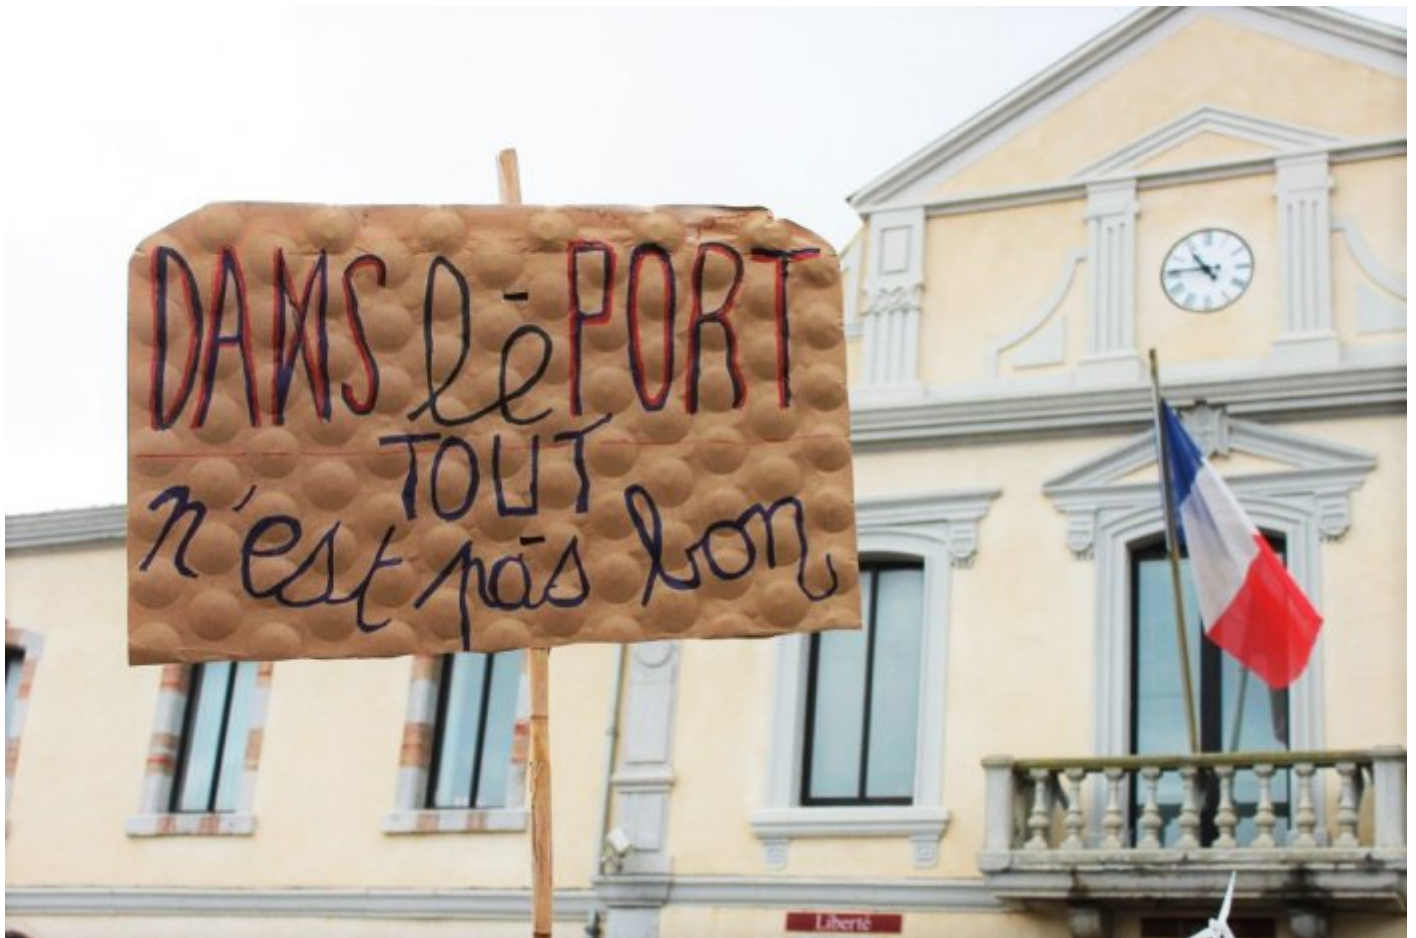 DANS le PORT
TOUT
n'est pas bon
Liberté